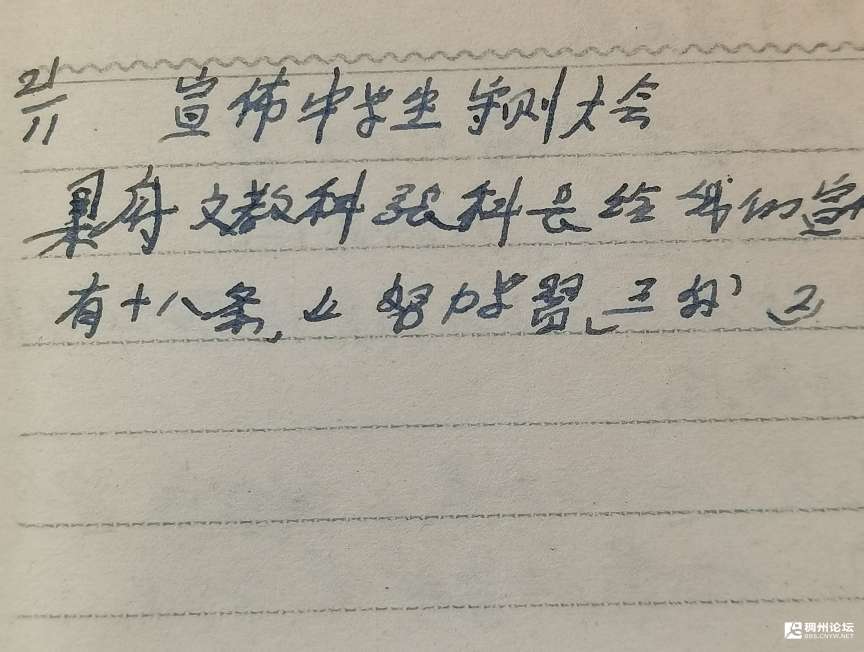 21/11 宣佈中学生守则大会
县府文教科张科长给我们宣
有十八条, 1, 努力学習, 三好 (2)
稠州论坛
BBS.CNYW.NET